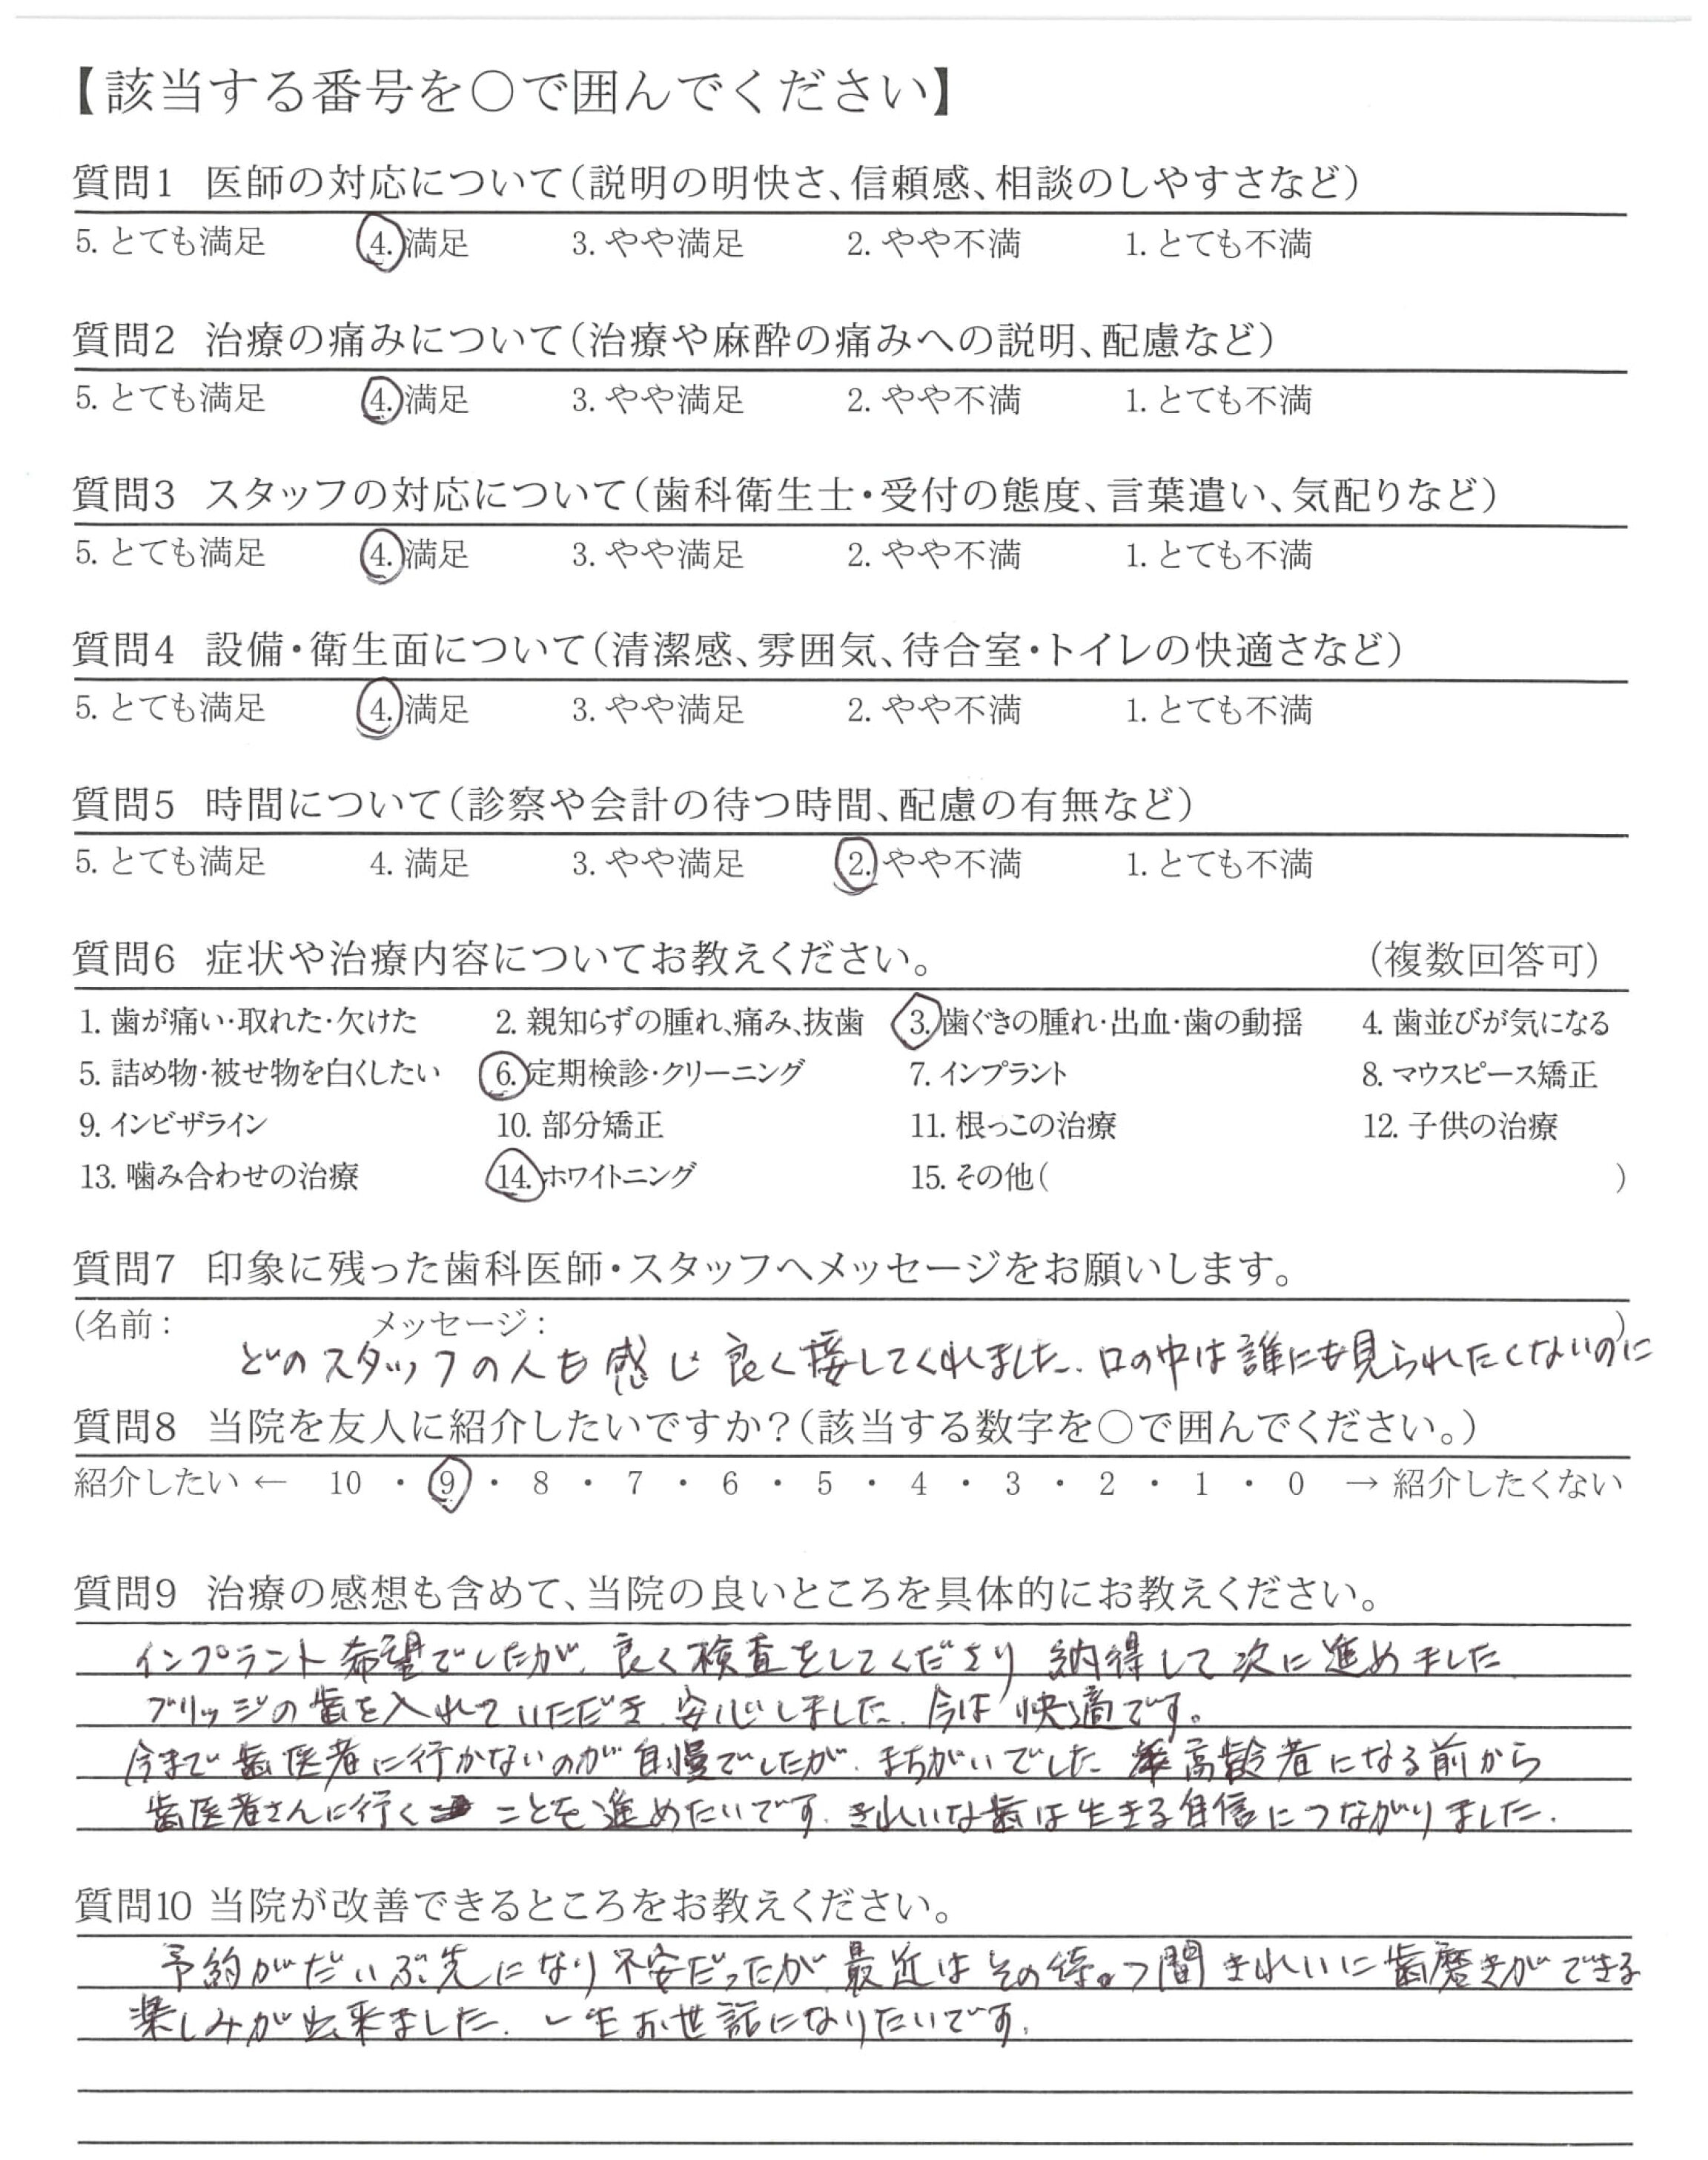 【該当する番号を○で囲んでください】
質問1 医師の対応について(説明の明快さ、信頼感、相談のしやすさなど)
5. とても満足 4. 満足 3. やや満足 2. やや不満 1. とても不満
質問2 治療の痛みについて(治療や麻酔の痛みへの説明、配慮など)
5. とても満足 4. 満足 3. やや満足 2. やや不満 1. とても不満
質問3 スタッフの対応について(歯科衛生士・受付の態度、言葉遣い、気配りなど)
5. とても満足 4. 満足 3. やや満足 2. やや不満 1. とても不満
質問4 設備・衛生面について(清潔感、雰囲気、待合室・トイレの快適さなど)
5. とても満足 4. 満足 3. やや満足 2. やや不満 1. とても不満
質問5 時間について(診察や会計の待つ時間、配慮の有無など)
5. とても満足 4. 満足 3. やや満足 2. やや不満 1. とても不満
質問6 症状や治療内容についてお教えください。 (複数回答可)
1. 歯が痛い・取れた・欠けた 2. 親知らずの腫れ、痛み、抜歯 3. 歯ぐきの腫れ・出血・歯の動揺 4. 歯並びが気になる
5. 詰め物・被せ物を白くしたい 6. 定期検診・クリーニング 7. インプラント 8. マウスピース矯正
9. インビザライン 10. 部分矯正 11. 根っこの治療 12. 子供の治療
13. 噛み合わせの治療 14. ホワイトニング 15. その他( )
質問7 印象に残った歯科医師・スタッフへメッセージをお願いします。
(名前: メッセージ: )
どのスタッフの人も感じ良く接してくれました. 口の中は誰にも見られたくないのに
質問8 当院を友人に紹介したいですか?(該当する数字を○で囲んでください。)
紹介したい ← 10 ・ 9 ・ 8 ・ 7 ・ 6 ・ 5 ・ 4 ・ 3 ・ 2 ・ 1 ・ 0 → 紹介したくない
質問9 治療の感想も含めて、当院の良いところを具体的にお教えください。
インプラント希望でしたが、良く検査をしてくださり 納得して次に進めました
ブリッジの歯を入れていただき、安心しました. 今は快適です。
今まで歯医者に行かないのが自慢でしたが、まちがいでした 高齢者になる前から
歯医者さんに行く ことを進めたいです. きれいな歯は生きる自信につながりました.
質問10 当院が改善できるところをお教えください。
予約がだいぶ先になり不安だったが 最近はその待つ間きれいに歯磨きができる
楽しみが出来ました. 一生お世話になりたいです.